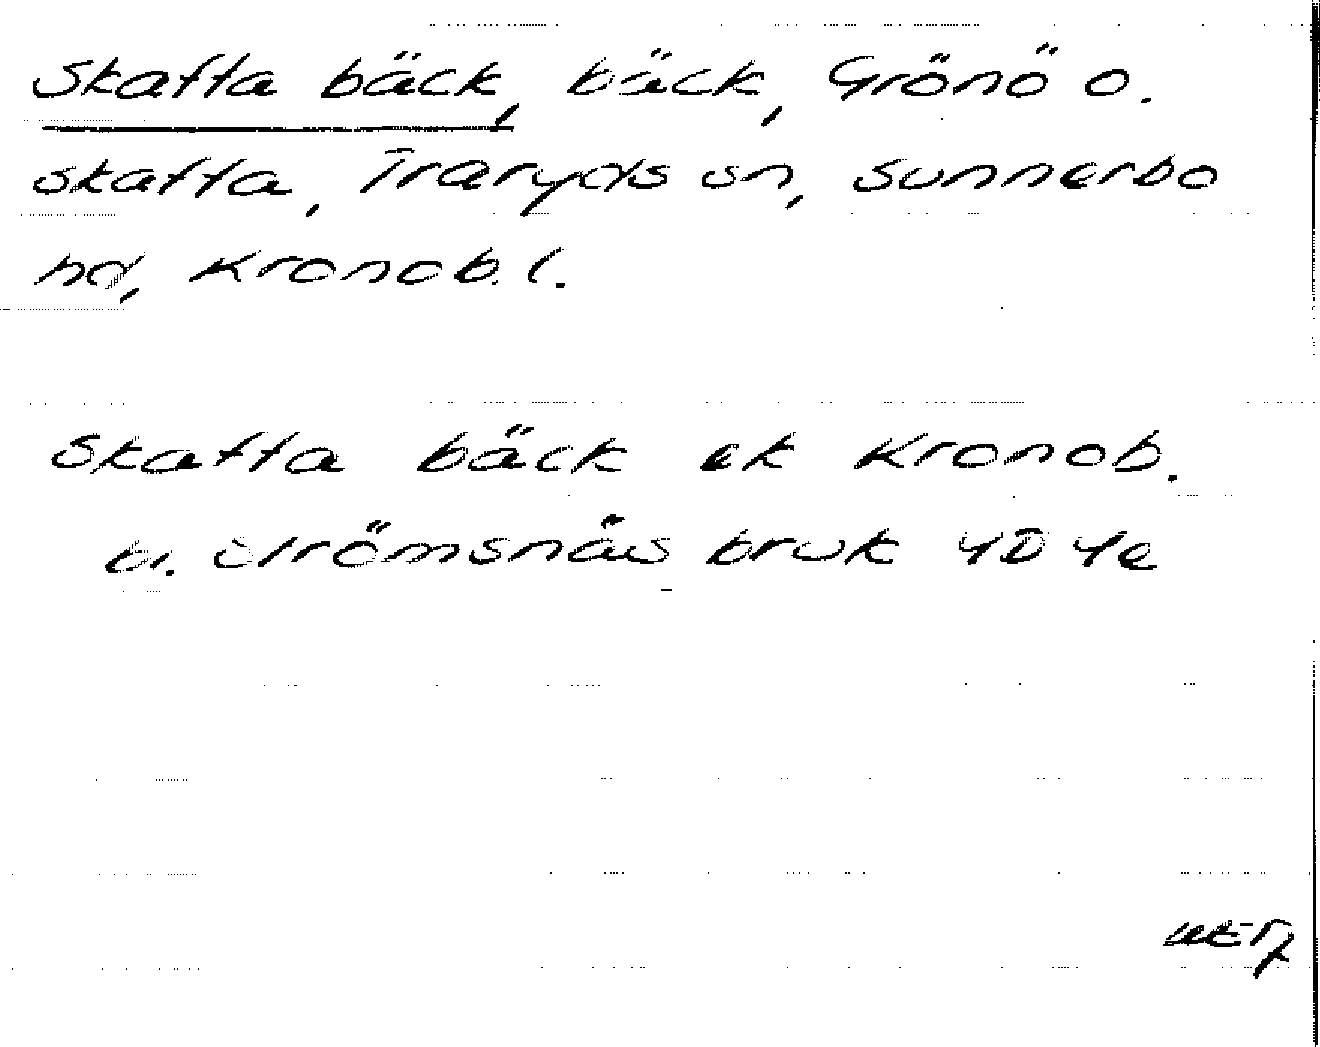 Skatta bäck, bäck, Grönö o.
skatta, Traryds sn, Sunnerbo
hd, Kronob. l.
Skatta bäck ek Kronob.
bl. Strömsnäs bruk 4D 4e